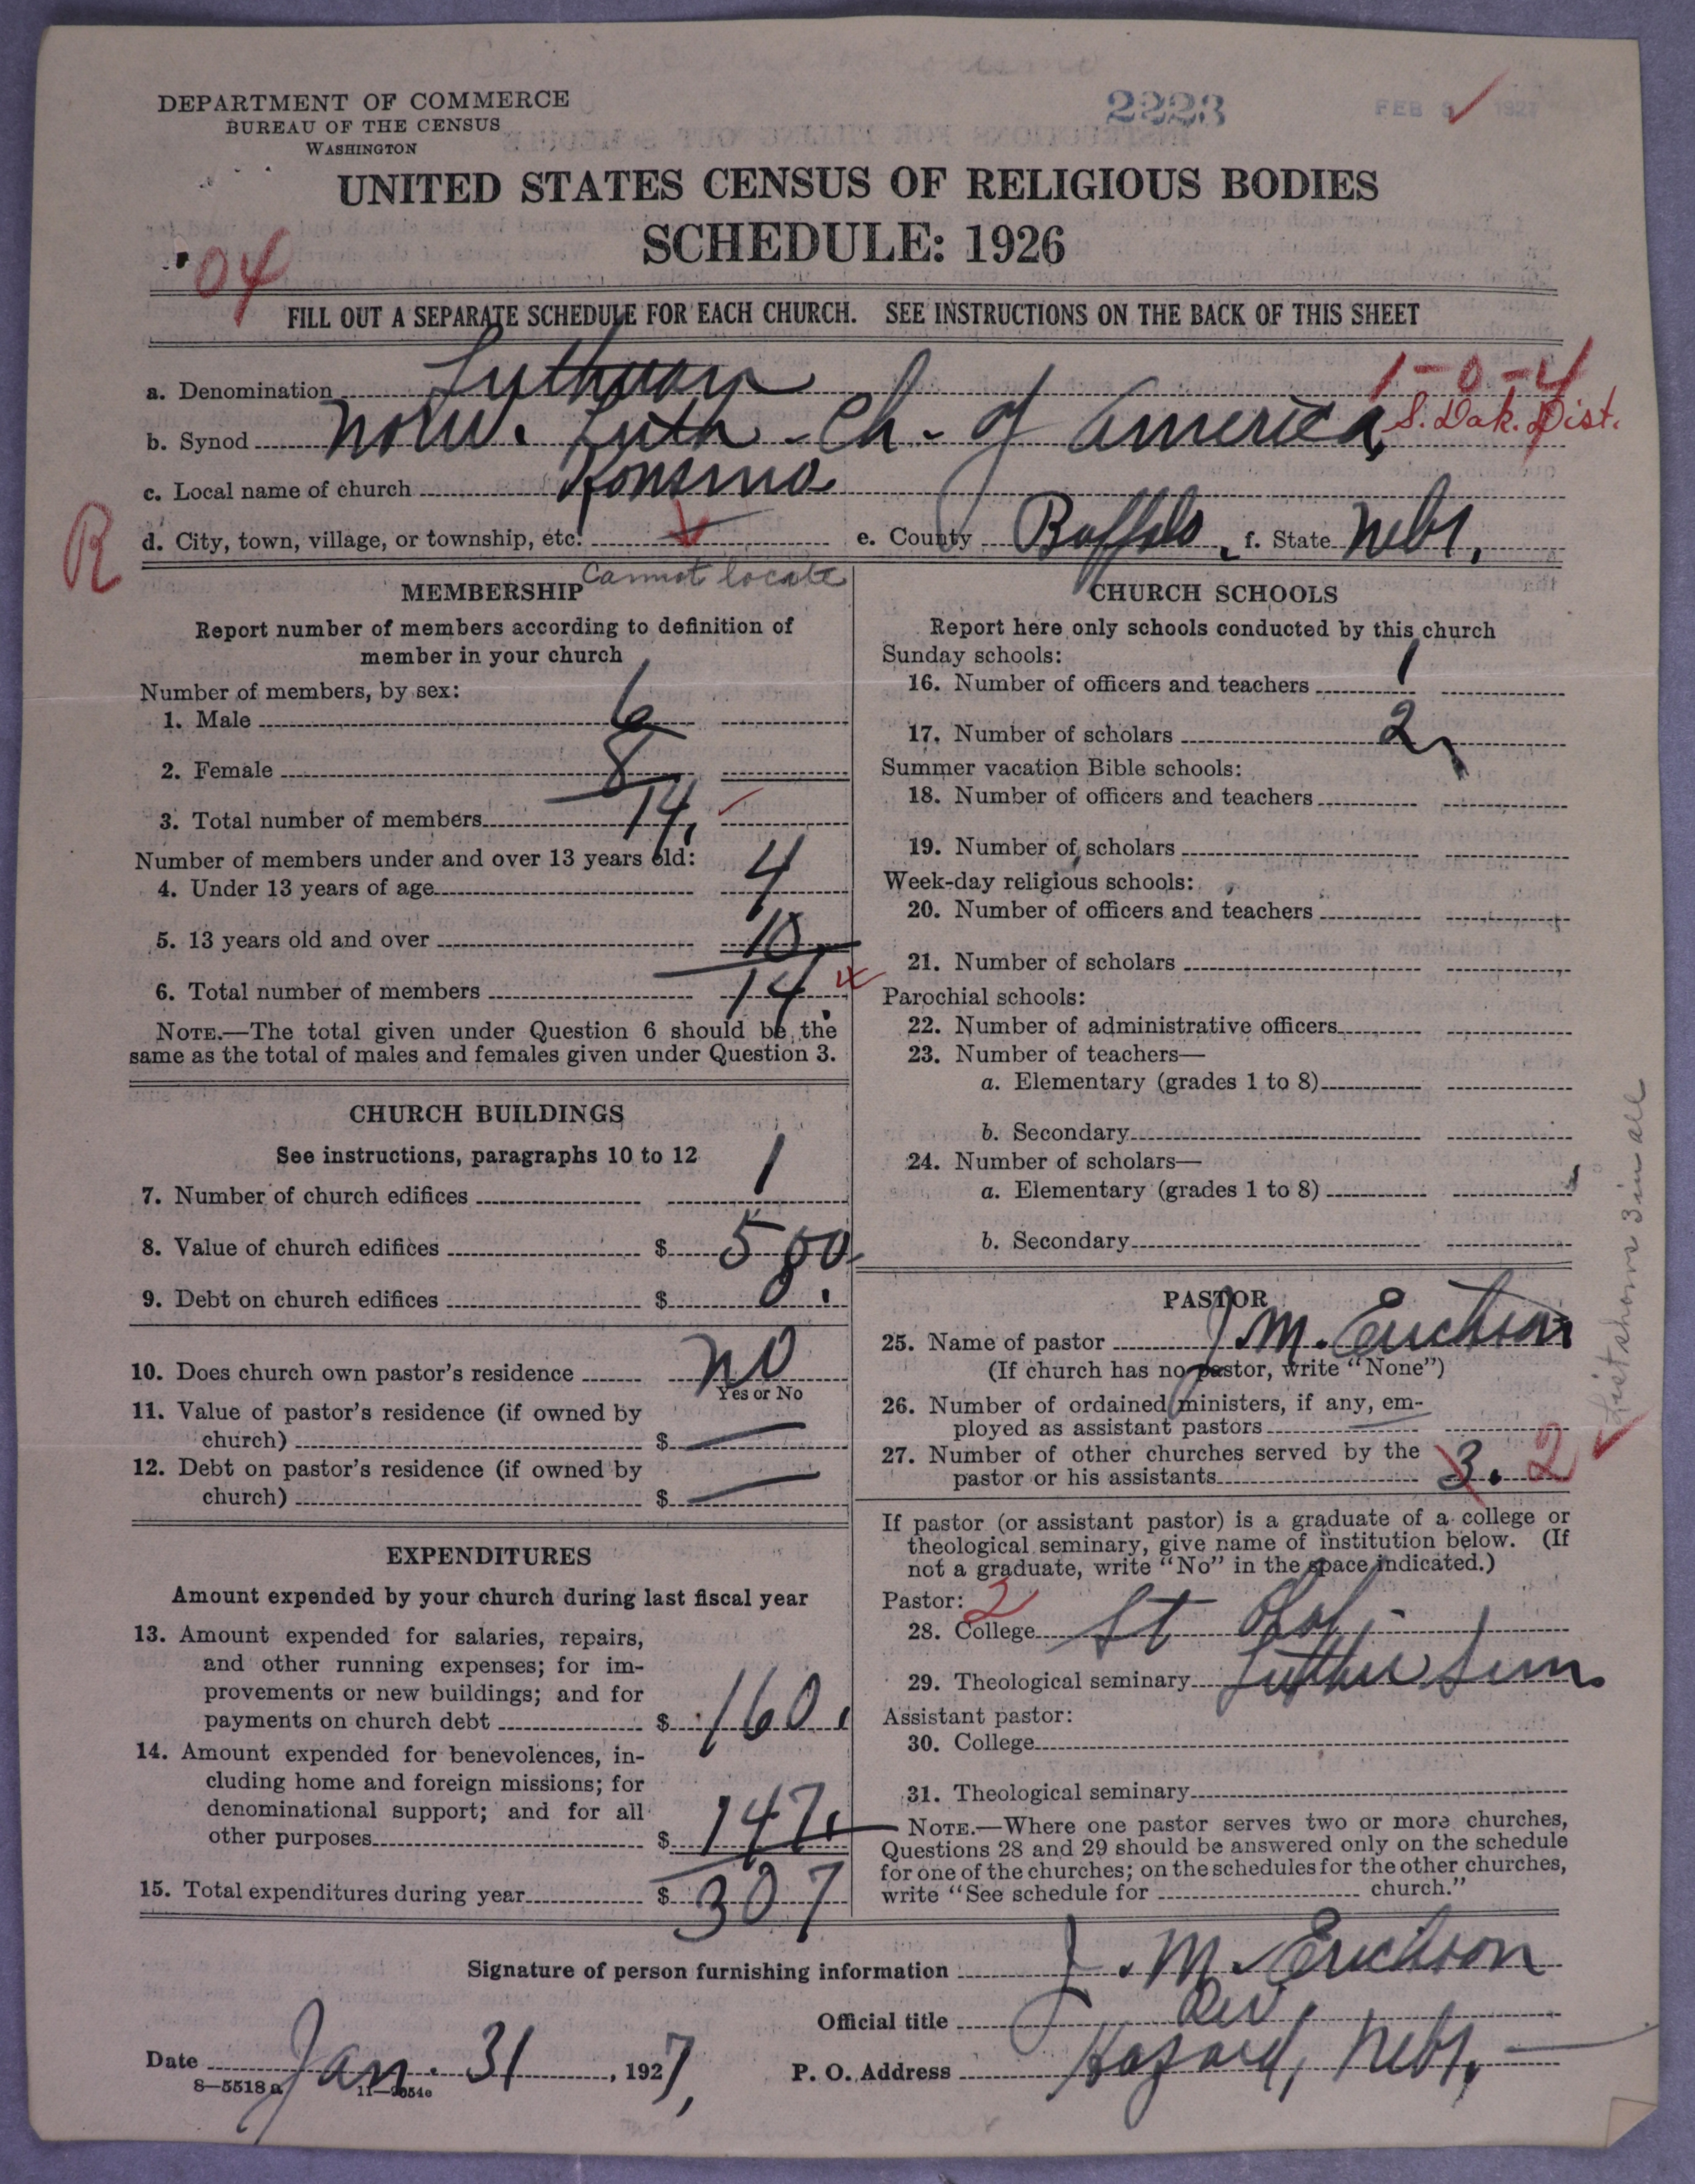 DEPARTMENT OF COMMERCE
BUREAU OF THE CENSUS
WASHINGTON
2223
FEB 1927
UNITED STATES CENSUS OF RELIGIOUS BODIES
SCHEDULE: 1926
04
FILL OUT A SEPARATE SCHEDULE FOR EACH CHURCH. SEE INSTRUCTIONS ON THE BACK OF THIS SHEET
1-0-4
a. Denomination Lutheran
b. Synod Norw. Luth. Ch. of America, S. Dak. Dist.
c. Local name of church
R
d. City, town, village, or township, etc. e. County Buffalo, f. State Nebr.
Cannot locate
MEMBERSHIP
Report number of members according to definition of
member in your church
Number of members, by sex:
1. Male 6
2. Female 8
3. Total number of members 14,
Number of members under and over 13 years old:
4. Under 13 years of age 4
5. 13 years old and over 10
6. Total number of members 14
NOTE.—The total given under Question 6 should be the
same as the total of males and females given under Question 3.
CHURCH BUILDINGS
See instructions, paragraphs 10 to 12
7. Number of church edifices 1
8. Value of church edifices $ 500
9. Debt on church edifices $ 0.
10. Does church own pastor's residence no
Yes or No
11. Value of pastor's residence (if owned by
church) $ —
12. Debt on pastor's residence (if owned by
church) $ —
EXPENDITURES
Amount expended by your church during last fiscal year
13. Amount expended for salaries, repairs,
and other running expenses; for im-
provements or new buildings; and for
payments on church debt $ 160.
14. Amount expended for benevolences, in-
cluding home and foreign missions; for
denominational support; and for all
other purposes $ 147.
15. Total expenditures during year $ 307
CHURCH SCHOOLS
Report here only schools conducted by this church
Sunday schools:
16. Number of officers and teachers 1
17. Number of scholars 2
Summer vacation Bible schools:
18. Number of officers and teachers
19. Number of scholars
Week-day religious schools:
20. Number of officers and teachers
21. Number of scholars
Parochial schools:
22. Number of administrative officers
23. Number of teachers—
a. Elementary (grades 1 to 8)
b. Secondary
24. Number of scholars—
a. Elementary (grades 1 to 8)
b. Secondary
PASTOR
25. Name of pastor J. M. Erickson
(If church has no pastor, write "None")
26. Number of ordained ministers, if any, em-
ployed as assistant pastors —
27. Number of other churches served by the
pastor or his assistants 3. 2
List shows 3 in all
If pastor (or assistant pastor) is a graduate of a college or
theological seminary, give name of institution below. (If
not a graduate, write "No" in the space indicated.)
Pastor: 2
28. College St Olaf
29. Theological seminary Luther Sem
Assistant pastor:
30. College
31. Theological seminary
NOTE.—Where one pastor serves two or more churches,
Questions 28 and 29 should be answered only on the schedule
for one of the churches; on the schedules for the other churches,
write "See schedule for church."
Signature of person furnishing information J. M. Erickson
Official title Rev.
Date Jan. 31, 1927, P. O. Address Hazard, Nebr.
8—5518a